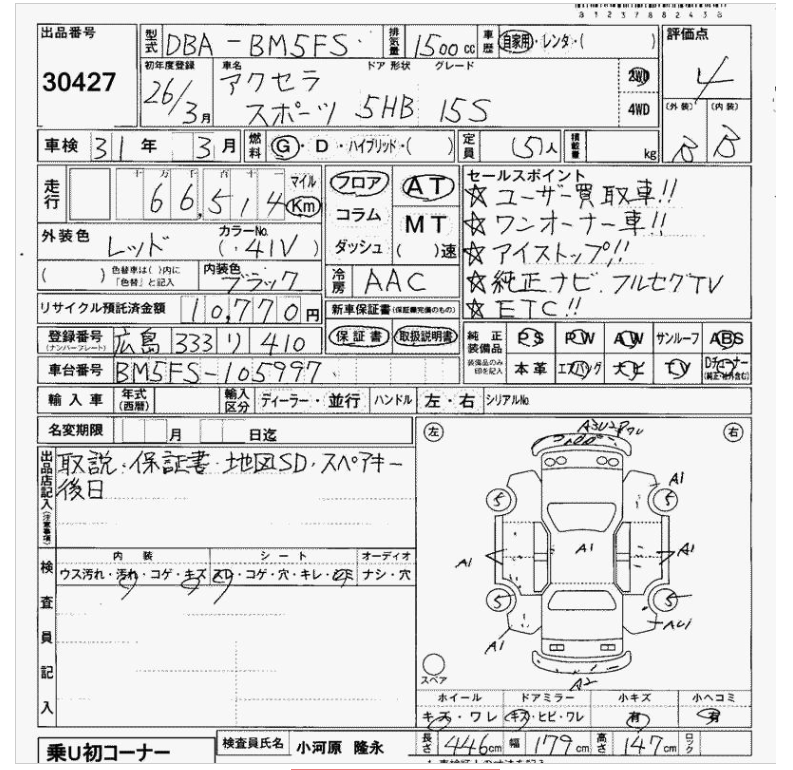 8 1 2 3 7 8 8 2 4 3 8
出品番号 30427
型式 DBA-BM5FS 排気量 1500cc 車歴 自家用・レンタ・( ) 評価点 4
初年度登録 26/3月 車名 アクセラ スポーツ ドア 形状 5HB グレード 15S 2WD 4WD (外装) B (内装) B
車検 31年 3月 燃料 G・D・ハイブリッド・( ) 定員 (5)人 積載量 kg
走行 十万千百十一 66,514 マイル Km
フロア コラム ダッシュ AT MT ( )速
セールスポイント
☆ユーザー買取車!!
☆ワンオーナー車!!
☆アイストップ!!
☆純正ナビ.フルセグTV
☆ETC!!
外装色 レッド カラーNo. (・41V)
( ) 色替車は( )内に「色替」と記入 内装色 ブラック 冷房 AAC
リサイクル預託済金額 10,770円 新車保証書(保証継続完備のもの)
登録番号 (ナンバープレート) 広島 333 り 410 保証書 取扱説明書
純正装備品 PS PW AW サンルーフ ABS
車台番号 BM5FS-105997
装備品のみ印を記入 本革 エアバッグ ナビ TV Dチューナー
輸入車 年式(西暦) 輸入区分 ディーラー・並行 ハンドル 左・右 シリアルNo
名変期限 月 日迄
左 右
出品店記入(注意事項) 取説・保証書・地図SD・スペアキー
後日
検査員記入
内装 シート オーディオ
ウス汚れ・汚れ・コゲ・キズ スレ・コゲ・穴・キレ・ヨゴミ ナシ・穴
A3U2
A1
5 5
A1 A1 A1
5 5
A1 AU1
スペア A2
ホイール ドアミラー 小キズ 小ヘコミ
キズ・ワレ キズ・ヒビ・ワレ 有 有
乗U初コーナー 検査員氏名 小河原 隆永 長さ 446cm 幅 179cm 高さ 147cm ロック